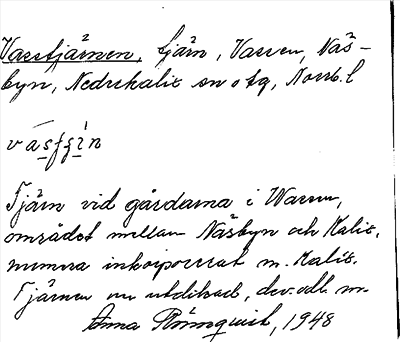 Vassetjärnen, tjärn, Vassen, Näs-
byn, Nedrekalix sn o tg, Norrb. l
Tjärn vid gårdarna i Wassen,
området mellan Näsbyn och Kalix,
numera inkorporerat m. Kalix.
Tjärnen nu utdikad,
Anna Rönnquist, 1948